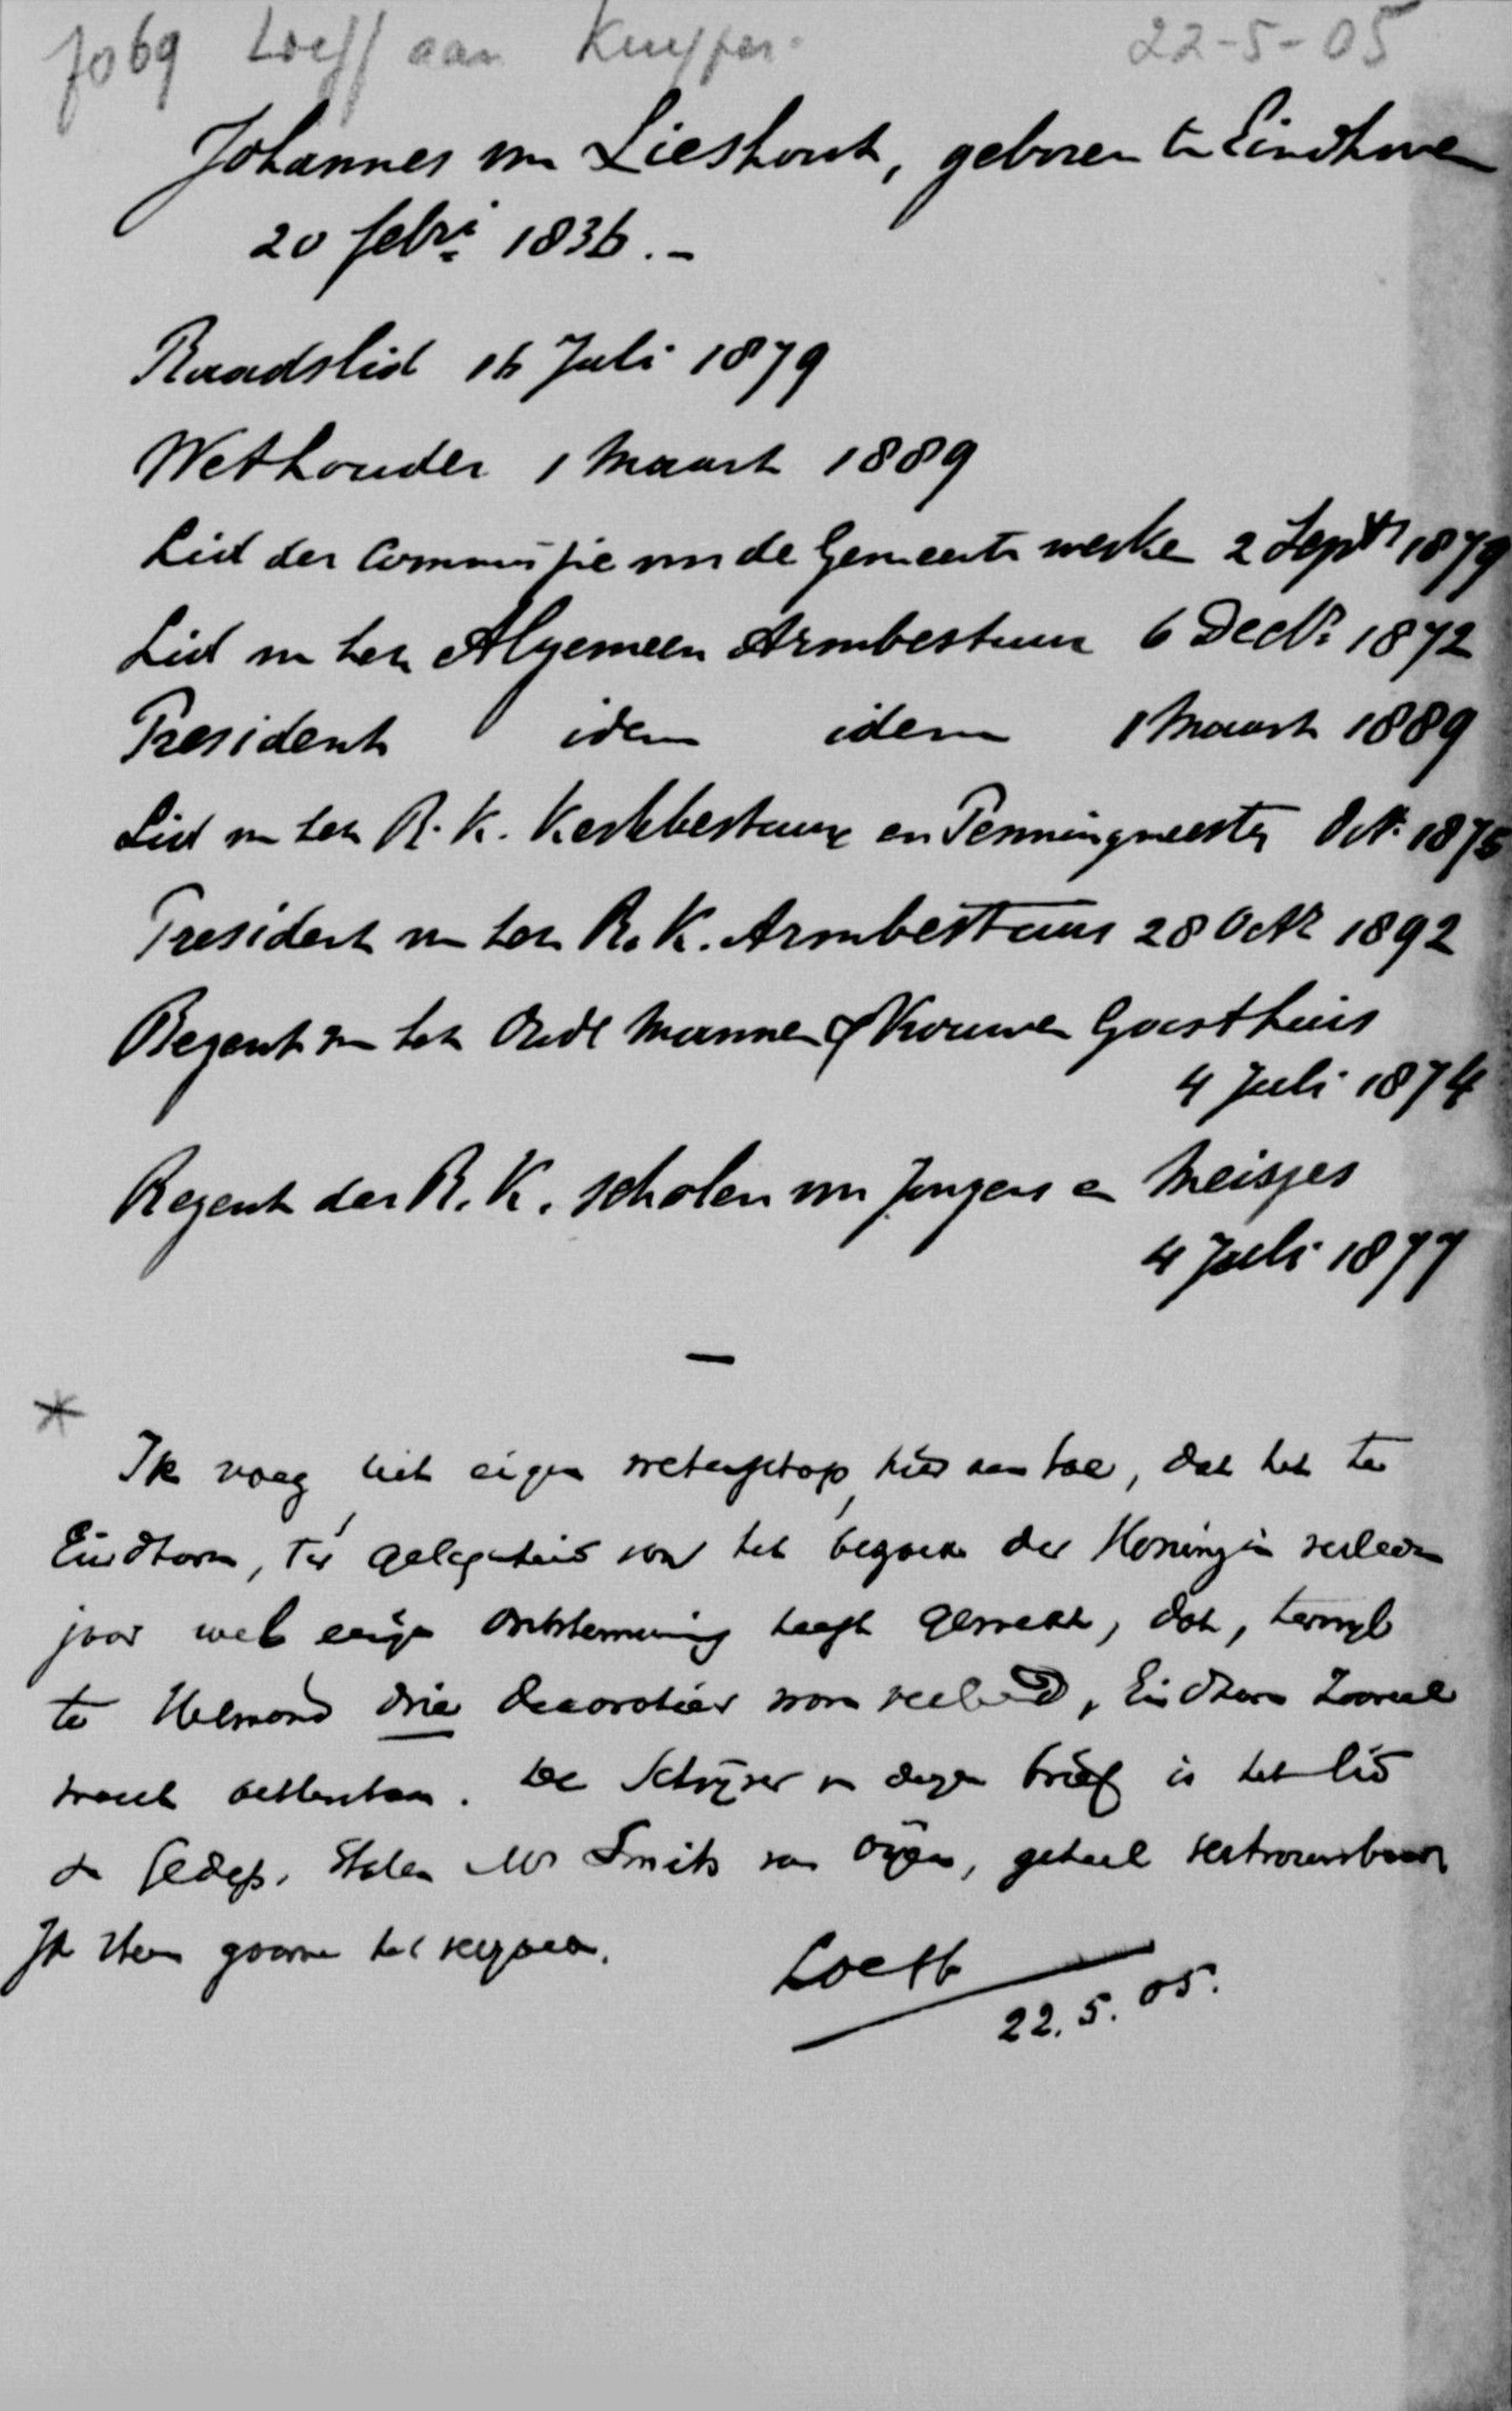 7069 Loeff aan Kuyper. 22-5-05
Johannes van Lieshout, geboren te Eindhoven
20 febri 1836. -
Raadslid 16 Juli 1879
Wethouder 1 Maart 1889
Lid der Commissie van de Gemeente werken 2 Septr 1879
Lid van het Algemeen Armbestuur 6 Decbr 1872
President idem idem 1 Maart 1889
Lid van het R. K. Kerkbestuur en Penningmeester Oct. 1875
President van het R. K. Armbestuur 28 Octr 1892
Regent van het Oude Mannen & Vrouwen Gasthuis
4 Juli 1874
Regent der R. K. scholen van Jongens en Meisjes
4 Juli 1877
—
* Ik voeg uit eigen wetenschap hier aan toe, dat het te
Eindhoven, ter gelegenheid van het bezoek der Koningin verleden
jaar wel eenige ontstemming heeft gewekt, dat, terwijl
te Helmond drie decoraties waren verleend, Eindhoven
. De Schrijver van dezen brief is het lid
der Gedep. Staten Mr Smits van Oyen, geheel vertrouwbaar.
Ik steun gaarne het verzoek.
Loeff
22.5.05.